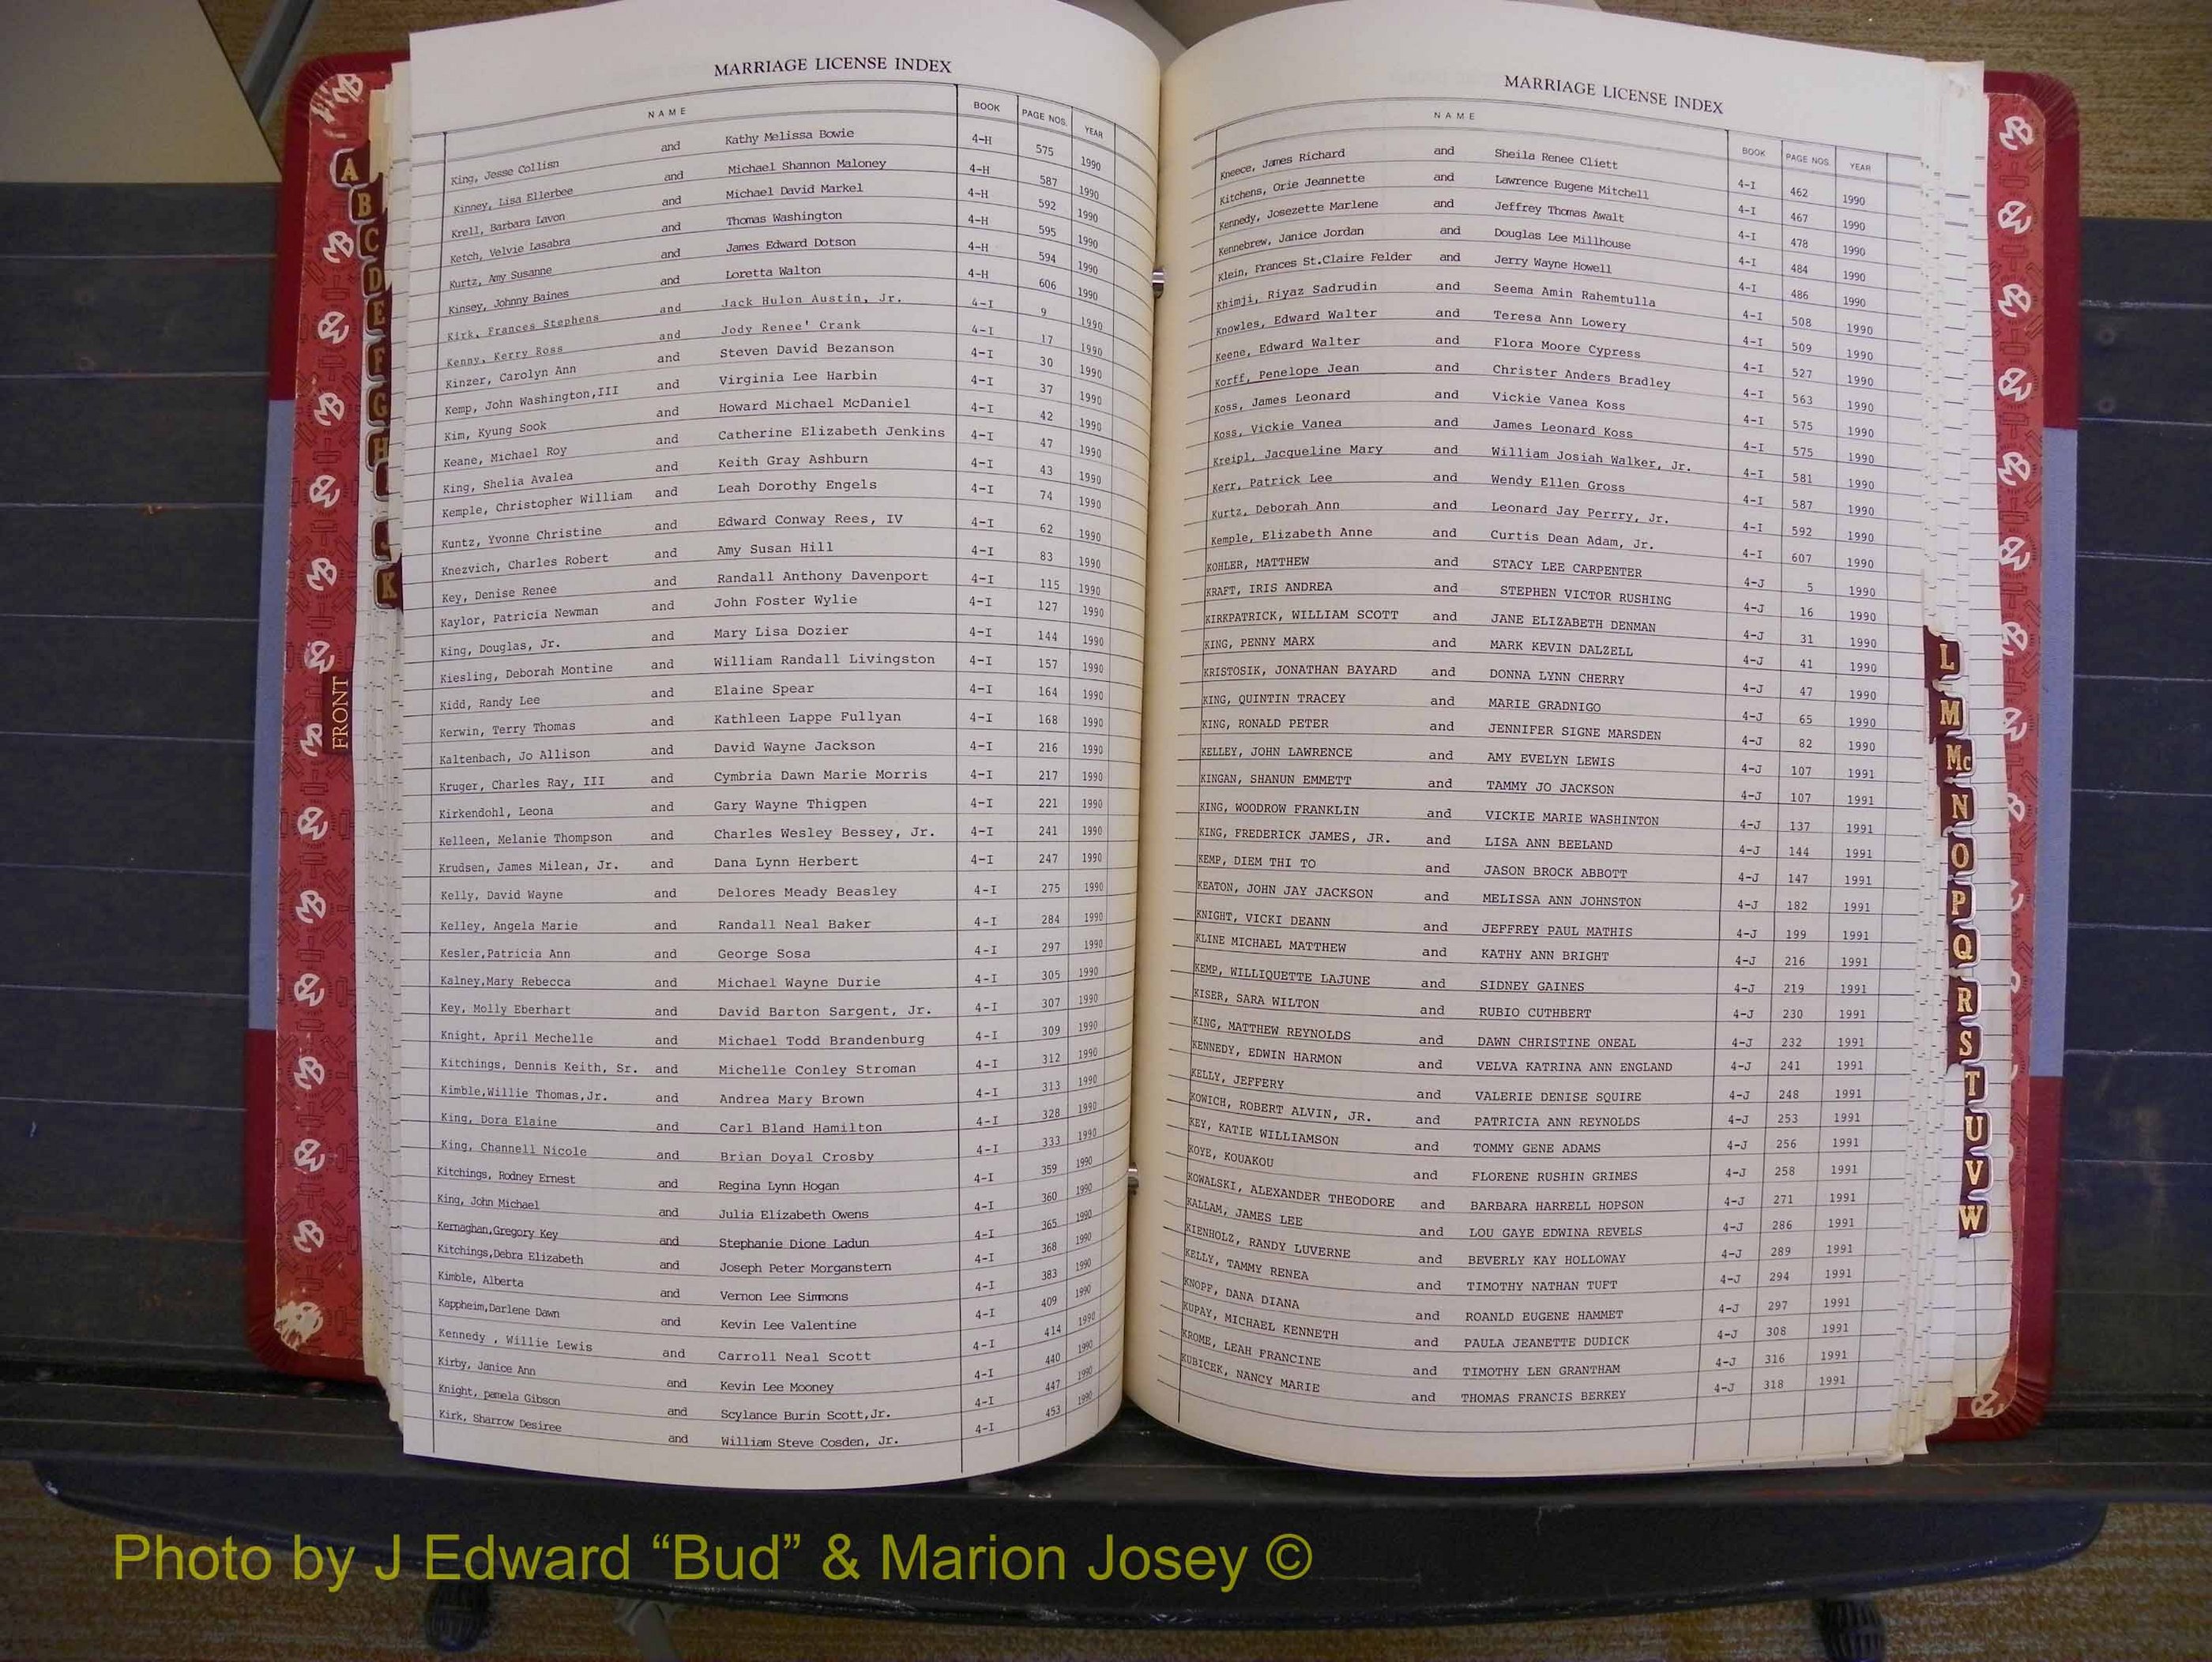 MARRIAGE LICENSE INDEX
NAME BOOK PAGE NOS. YEAR
King, Jesse Collisn and Kathy Melissa Bowie 4-H 575 1990
Kinney, Lisa Ellerbee and Michael Shannon Maloney 4-H 587 1990
Krell, Barbara Lavon and Michael David Markel 4-H 592 1990
Ketch, Velvie Lasabra and Thomas Washington 4-H 595 1990
Kurtz, Amy Susanne and James Edward Dotson 4-H 594 1990
Kinsey, Johnny Baines and Loretta Walton 4-H 606 1990
Kirk, Frances Stephens and Jack Hulon Austin, Jr. 4-I 9 1990
Kenny, Kerry Ross and Jody Renee' Crank 4-I 17 1990
Kinzer, Carolyn Ann and Steven David Bezanson 4-I 30 1990
Kemp, John Washington,III and Virginia Lee Harbin 4-I 37 1990
Kim, Kyung Sook and Howard Michael McDaniel 4-I 42 1990
Keane, Michael Roy and Catherine Elizabeth Jenkins 4-I 47 1990
King, Shelia Avalea and Keith Gray Ashburn 4-I 43 1990
Kemple, Christopher William and Leah Dorothy Engels 4-I 74 1990
Kuntz, Yvonne Christine and Edward Conway Rees, IV 4-I 62 1990
Knezvich, Charles Robert and Amy Susan Hill 4-I 83 1990
Key, Denise Renee and Randall Anthony Davenport 4-I 115 1990
Kaylor, Patricia Newman and John Foster Wylie 4-I 127 1990
King, Douglas, Jr. and Mary Lisa Dozier 4-I 144 1990
Kiesling, Deborah Montine and William Randall Livingston 4-I 157 1990
Kidd, Randy Lee and Elaine Spear 4-I 164 1990
Kerwin, Terry Thomas and Kathleen Lappe Fullyan 4-I 168 1990
Kaltenbach, Jo Allison and David Wayne Jackson 4-I 216 1990
Kruger, Charles Ray, III and Cymbria Dawn Marie Morris 4-I 217 1990
Kirkendohl, Leona and Gary Wayne Thigpen 4-I 221 1990
Kelleen, Melanie Thompson and Charles Wesley Bessey, Jr. 4-I 241 1990
Krudsen, James Milean, Jr. and Dana Lynn Herbert 4-I 247 1990
Kelly, David Wayne and Delores Meady Beasley 4-I 275 1990
Kelley, Angela Marie and Randall Neal Baker 4-I 284 1990
Kesler,Patricia Ann and George Sosa 4-I 297 1990
Kalney,Mary Rebecca and Michael Wayne Durie 4-I 305 1990
Key, Molly Eberhart and David Barton Sargent, Jr. 4-I 307 1990
Knight, April Mechelle and Michael Todd Brandenburg 4-I 309 1990
Kitchings, Dennis Keith, Sr. and Michelle Conley Stroman 4-I 312 1990
Kimble,Willie Thomas,Jr. and Andrea Mary Brown 4-I 313 1990
King, Dora Elaine and Carl Bland Hamilton 4-I 328 1990
King, Channell Nicole and Brian Doyal Crosby 4-I 333 1990
Kitchings, Rodney Ernest and Regina Lynn Hogan 4-I 359 1990
King, John Michael and Julia Elizabeth Owens 4-I 360 1990
Kernaghan,Gregory Key and Stephanie Dione Ladun 4-I 365 1990
Kitchings,Debra Elizabeth and Joseph Peter Morganstern 4-I 368 1990
Kimble, Alberta and Vernon Lee Simmons 4-I 383 1990
Kappheim,Darlene Dawn and Kevin Lee Valentine 4-I 409 1990
Kennedy , Willie Lewis and Carroll Neal Scott 4-I 414 1990
Kirby, Janice Ann and Kevin Lee Mooney 4-I 440 1990
Knight, pamela Gibson and Scylance Burin Scott,Jr. 4-I 447 1990
Kirk, Sharrow Desiree and William Steve Cosden, Jr. 4-I 453 1990
MARRIAGE LICENSE INDEX
NAME BOOK PAGE NOS. YEAR
Kneece, James Richard and Sheila Renee Cliett 4-I 462 1990
Kitchens, Orie Jeannette and Lawrence Eugene Mitchell 4-I 467 1990
Kennedy, Josezette Marlene and Jeffrey Thomas Awalt 4-I 478 1990
Kennebrew, Janice Jordan and Douglas Lee Millhouse 4-I 484 1990
Klein, Frances St.Claire Felder and Jerry Wayne Howell 4-I 486 1990
Khimji, Riyaz Sadrudin and Seema Amin Rahemtulla 4-I 508 1990
Knowles, Edward Walter and Teresa Ann Lowery 4-I 509 1990
Keene, Edward Walter and Flora Moore Cypress 4-I 527 1990
Korff, Penelope Jean and Christer Anders Bradley 4-I 563 1990
Koss, James Leonard and Vickie Vanea Koss 4-I 575 1990
Koss, Vickie Vanea and James Leonard Koss 4-I 575 1990
Kreipl, Jacqueline Mary and William Josiah Walker, Jr. 4-I 581 1990
Kerr, Patrick Lee and Wendy Ellen Gross 4-I 587 1990
Kurtz, Deborah Ann and Leonard Jay Perrry, Jr. 4-I 592 1990
Kemple, Elizabeth Anne and Curtis Dean Adam, Jr. 4-I 607 1990
KOHLER, MATTHEW and STACY LEE CARPENTER 4-J 5 1990
KRAFT, IRIS ANDREA and STEPHEN VICTOR RUSHING 4-J 16 1990
KIRKPATRICK, WILLIAM SCOTT and JANE ELIZABETH DENMAN 4-J 31 1990
KING, PENNY MARX and MARK KEVIN DALZELL 4-J 41 1990
KRISTOSIK, JONATHAN BAYARD and DONNA LYNN CHERRY 4-J 47 1990
KING, QUINTIN TRACEY and MARIE GRADNIGO 4-J 65 1990
KING, RONALD PETER and JENNIFER SIGNE MARSDEN 4-J 82 1990
KELLEY, JOHN LAWRENCE and AMY EVELYN LEWIS 4-J 107 1991
KINGAN, SHANUN EMMETT and TAMMY JO JACKSON 4-J 107 1991
KING, WOODROW FRANKLIN and VICKIE MARIE WASHINTON 4-J 137 1991
KING, FREDERICK JAMES, JR. and LISA ANN BEELAND 4-J 144 1991
KEMP, DIEM THI TO and JASON BROCK ABBOTT 4-J 147 1991
KEATON, JOHN JAY JACKSON and MELISSA ANN JOHNSTON 4-J 182 1991
KNIGHT, VICKI DEANN and JEFFREY PAUL MATHIS 4-J 199 1991
KLINE MICHAEL MATTHEW and KATHY ANN BRIGHT 4-J 216 1991
KEMP, WILLIQUETTE LAJUNE and SIDNEY GAINES 4-J 219 1991
KISER, SARA WILTON and RUBIO CUTHBERT 4-J 230 1991
KING, MATTHEW REYNOLDS and DAWN CHRISTINE ONEAL 4-J 232 1991
KENNEDY, EDWIN HARMON and VELVA KATRINA ANN ENGLAND 4-J 241 1991
KELLY, JEFFERY and VALERIE DENISE SQUIRE 4-J 248 1991
KOWICH, ROBERT ALVIN, JR. and PATRICIA ANN REYNOLDS 4-J 253 1991
KEY, KATIE WILLIAMSON and TOMMY GENE ADAMS 4-J 256 1991
KOYE, KOUAKOU and FLORENE RUSHIN GRIMES 4-J 258 1991
KOWALSKI, ALEXANDER THEODORE and BARBARA HARRELL HOPSON 4-J 271 1991
KALLAM, JAMES LEE and LOU GAYE EDWINA REVELS 4-J 286 1991
KIENHOLZ, RANDY LUVERNE and BEVERLY KAY HOLLOWAY 4-J 289 1991
KELLY, TAMMY RENEA and TIMOTHY NATHAN TUFT 4-J 294 1991
KNOPF, DANA DIANA and ROANLD EUGENE HAMMET 4-J 297 1991
KUPAY, MICHAEL KENNETH and PAULA JEANETTE DUDICK 4-J 308 1991
KROME, LEAH FRANCINE and TIMOTHY LEN GRANTHAM 4-J 316 1991
KUBICEK, NANCY MARIE and THOMAS FRANCIS BERKEY 4-J 318 1991
A
B
C
D
E
F
G
H
J
K
FRONT
L
M
Mc
N
O
P
Q
R
S
T
U
V
W
Photo by J Edward “Bud” & Marion Josey ©